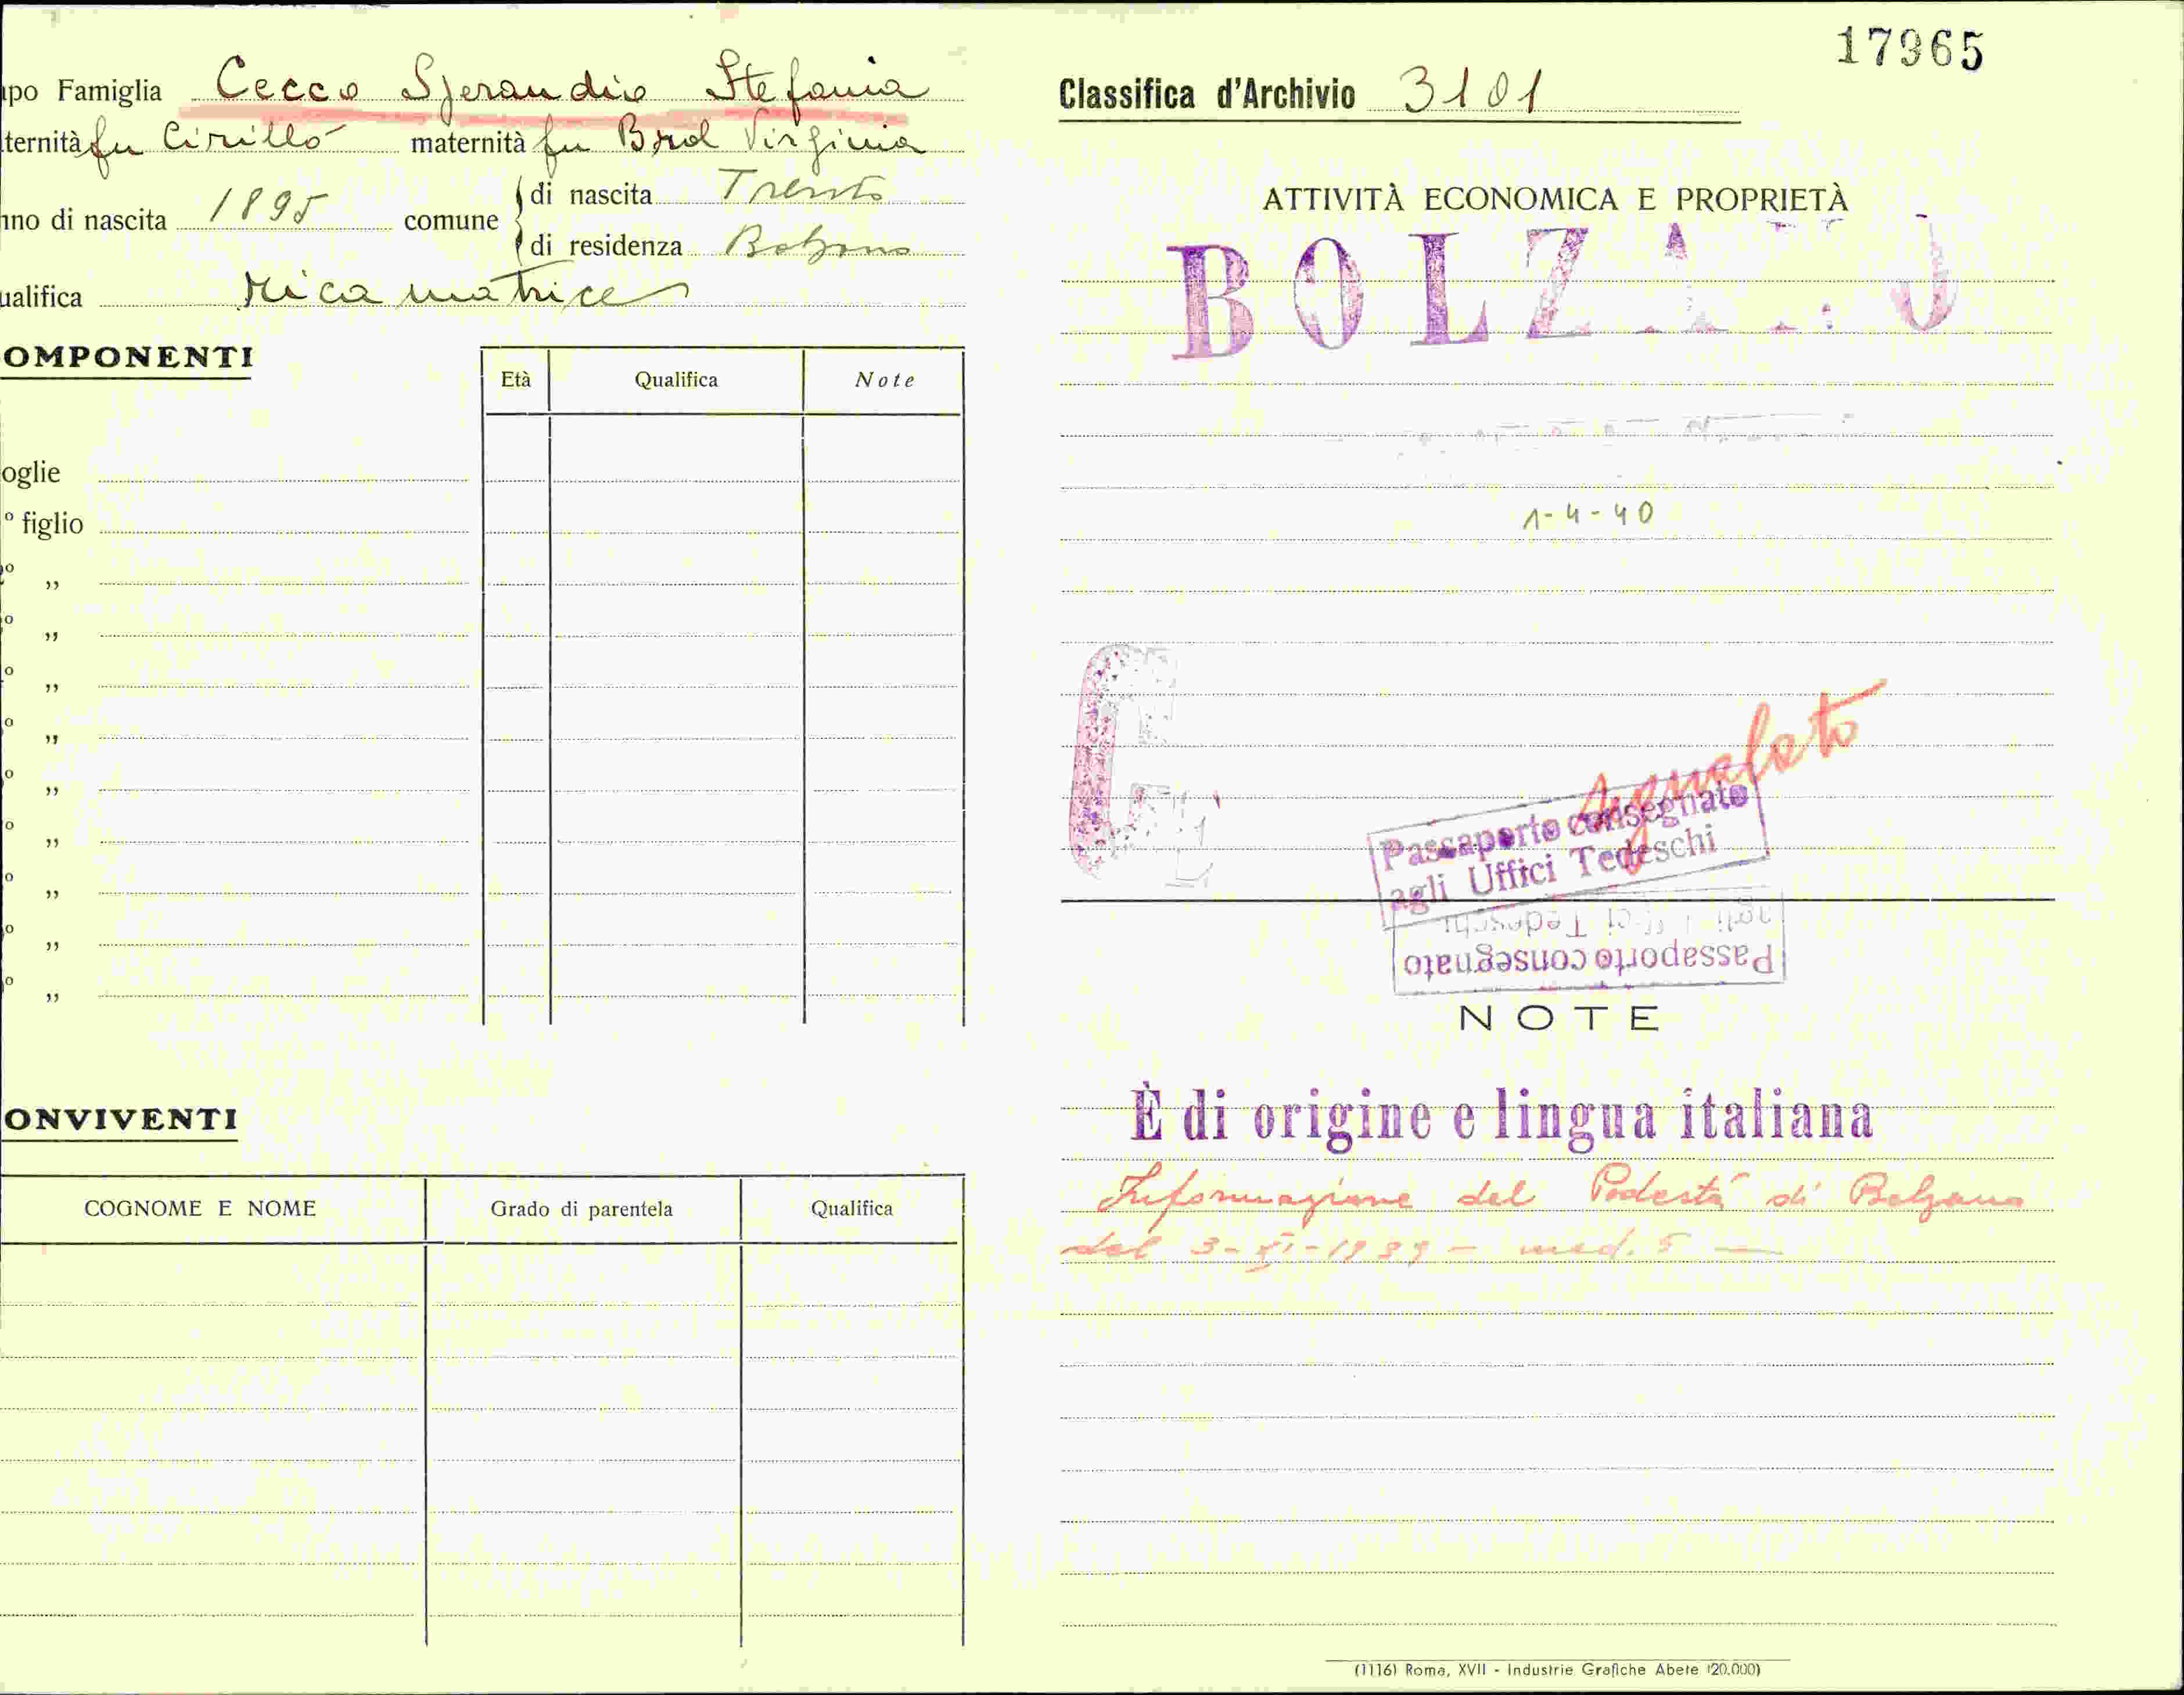 17965
po Famiglia Cecco Sperandio Stefania
ternità fu Cirillo maternità fu Brol Virginia
nno di nascita 1895 comune di nascita Trento
di residenza Bolzano
ualifica Ricamatrice
OMPONENTI
Età Qualifica Note
oglie
° figlio
° „
° „
° „
° „
° „
° „
° „
° „
° „
ONVIVENTI
COGNOME E NOME Grado di parentela Qualifica
Classifica d'Archivio 3101
ATTIVITÀ ECONOMICA E PROPRIETÀ
BOLZANO
1-4-40
Passaporto consegnato
agli Uffici Tedeschi
agli Uffici Tedeschi
Passaporto consegnato
NOTE
È di origine e lingua italiana
Informazione del Podestà di Bolzano
del 3-XI-1939 - mod. 5 -
(1116) Roma, XVII - Industrie Grafiche Abete (20.000)